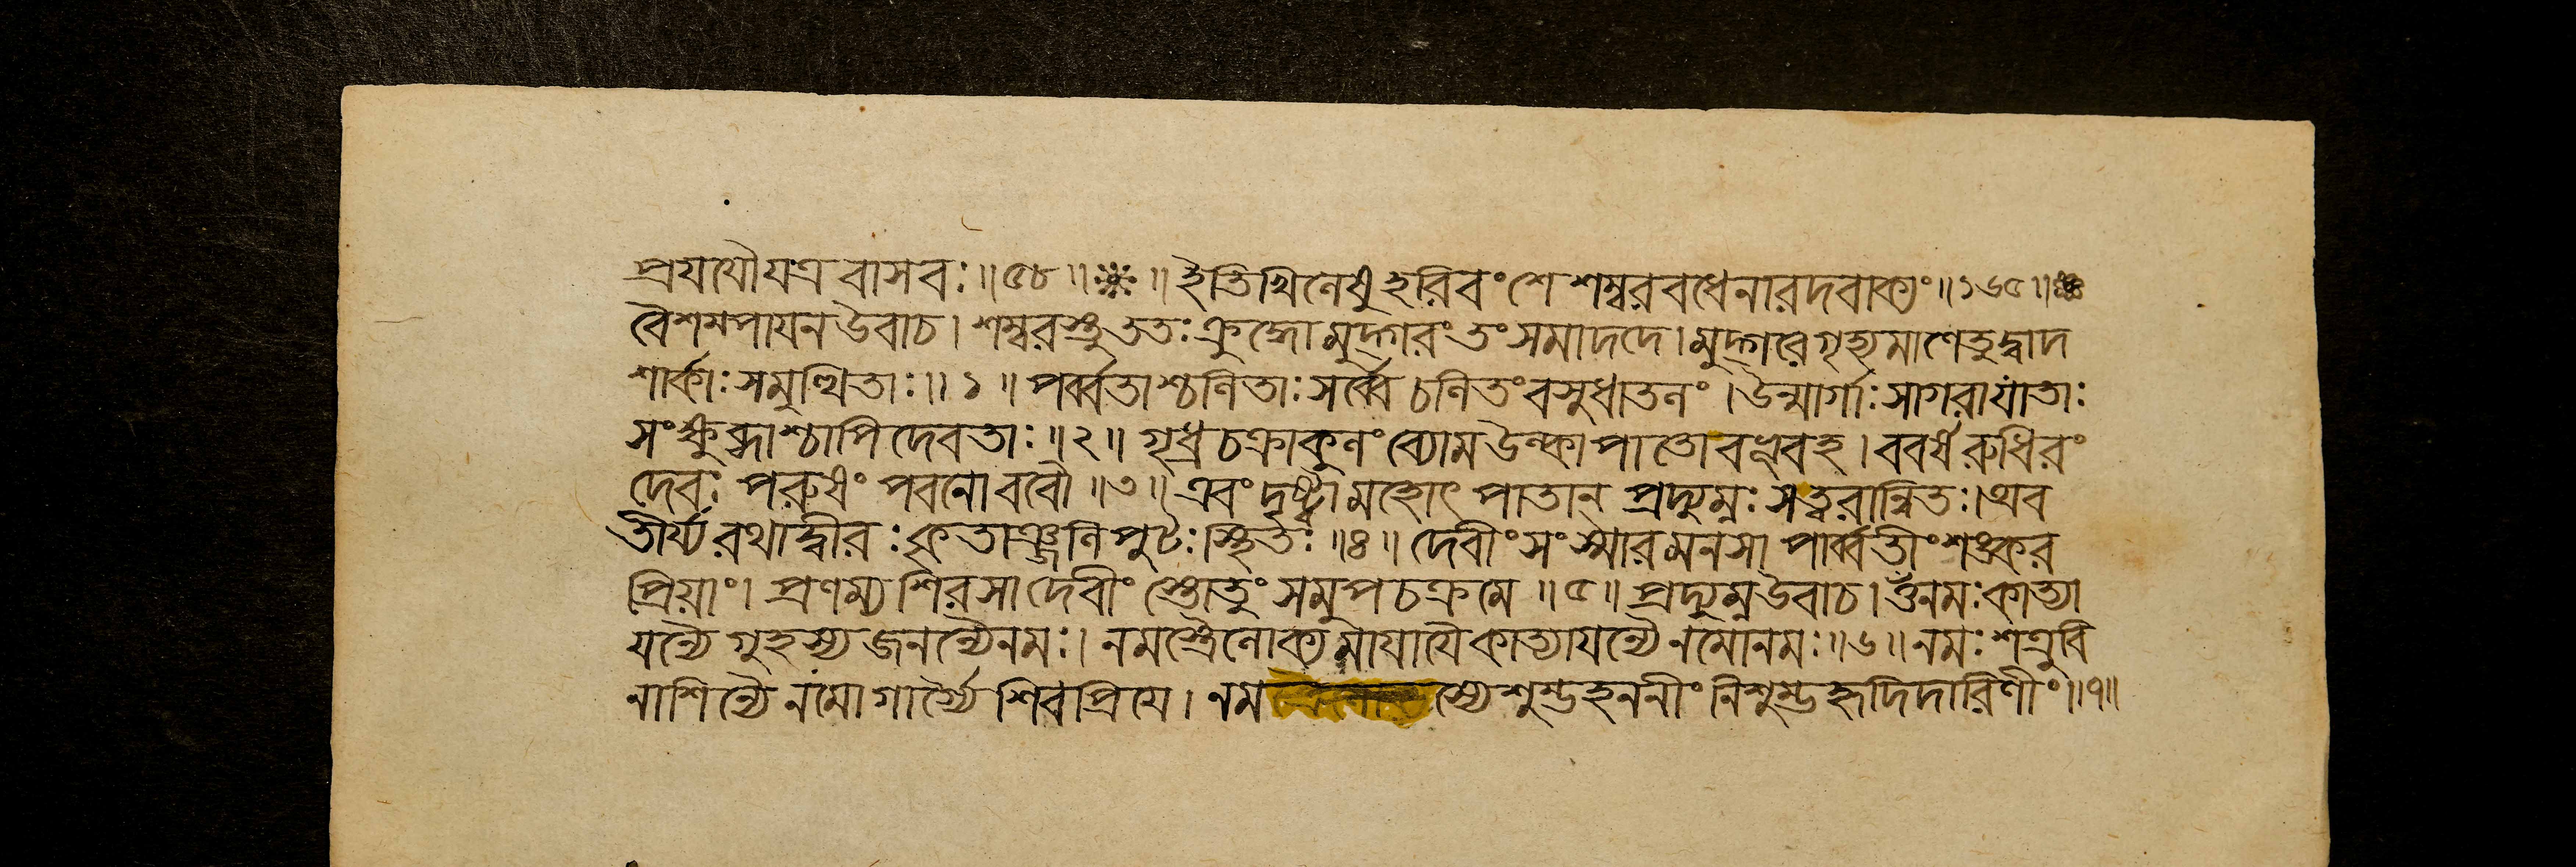 প্রযযৌযত্র বাসবঃ॥৫৮॥ ॥ইতিখিলেষুহরিবংশে শম্বরবধেনারদবাক্যং॥১৬৫॥
বৈশম্পাযন উবাচ। শম্বরস্তুততঃক্রুদ্ধোমুদ্গরংতংসমাদদে।মুদ্গরেগৃহ্যমাণেতুদ্বাদ
শার্কাঃসমুত্থিতাঃ॥১॥ পর্ব্বতাশ্চলিতাঃসর্ব্বে চলিতংবসুধাতলং।উন্মার্গাঃসাগরাযাতাঃ
সংক্ষুব্ধাশ্চাপিদেবতাঃ॥২॥ গৃধ্রচক্রাকুলংব্যোমউল্কাপাতোবভূবহ।ববর্ষরুধিরং
দেবঃ পরুষং পবনোববৌ॥৩॥এবংদৃষ্ট্বামহোৎপাতান প্রদ্যুম্নঃসত্বরান্বিতঃ।অব
তীর্য্যরথাদ্বীরঃকৃতাঞ্জলিপুটঃস্থিতঃ॥৪॥ দেবীংসংস্মারমনসা পার্ব্বতীংশঙ্কর
প্রিয়াং। প্রণম্যশিরসাদেবীং স্তোতুং সমুপচক্রমে॥৫॥ প্রদ্যুম্নউবাচ।ওঁনমঃকাত্যা
যন্যৈ গুহস্যজনন্যৈনমঃ। নমস্ত্রৈলোক্যমাযাযৈকাত্যাযন্যৈনমোনমঃ॥৬॥নমঃশত্রুবি
নাশিন্যৈনমোগার্গ্যৈ শিবপ্রিযে। নম স্যেশুম্ভহননীংনিশুম্ভহৃদিদারিণীং॥৭॥